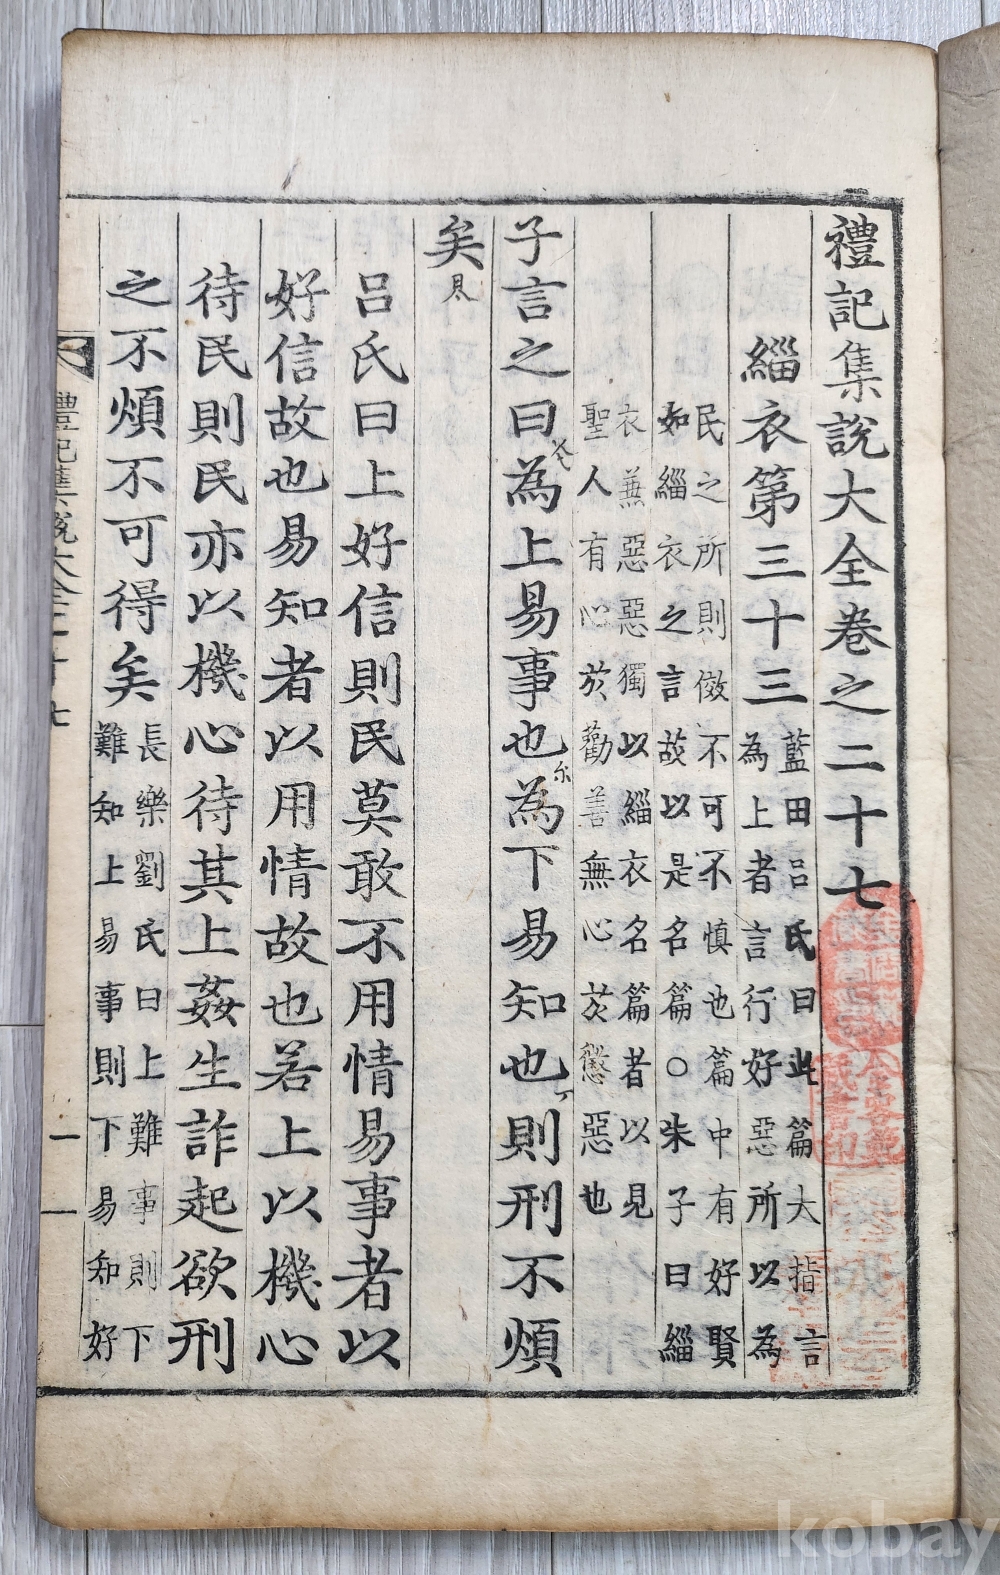 禮記集說大全卷之二十七
緇衣第三十三
藍田呂氏曰此篇大指言
為上者言行好惡所以為
民之所則儌不可不慎也篇中有好賢
如緇衣之言故以是名篇○朱子曰緇
衣兼惡惡獨以緇衣名篇者以見
聖人有心於勸善無心於懲惡也
子言之曰為上易事也為下易知也則刑不煩
矣
呂氏曰上好信則民莫敢不用情易事者以
好信故也易知者以用情故也若上以機心
待民則民亦以機心待其上姦生詐起欲刑
之不煩不可得矣
長樂劉氏曰上難事則下
難知上易事則下易知好
禮記集說大全二十七
一
kobay